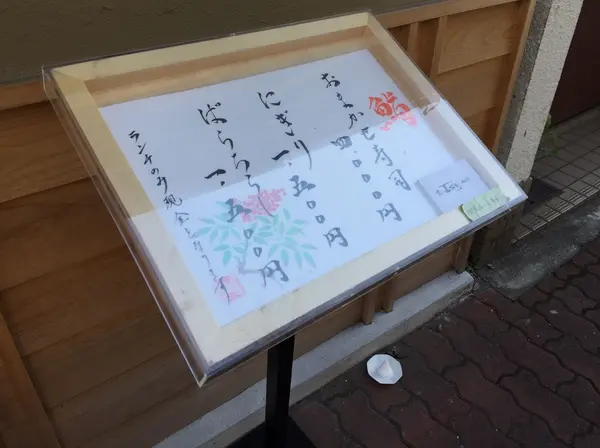 鮨
七寿司
おまかせ 四、〇〇〇円
にぎり 一、五〇〇円
ばらちらし 一、五〇〇円
ランチのみ現金となります